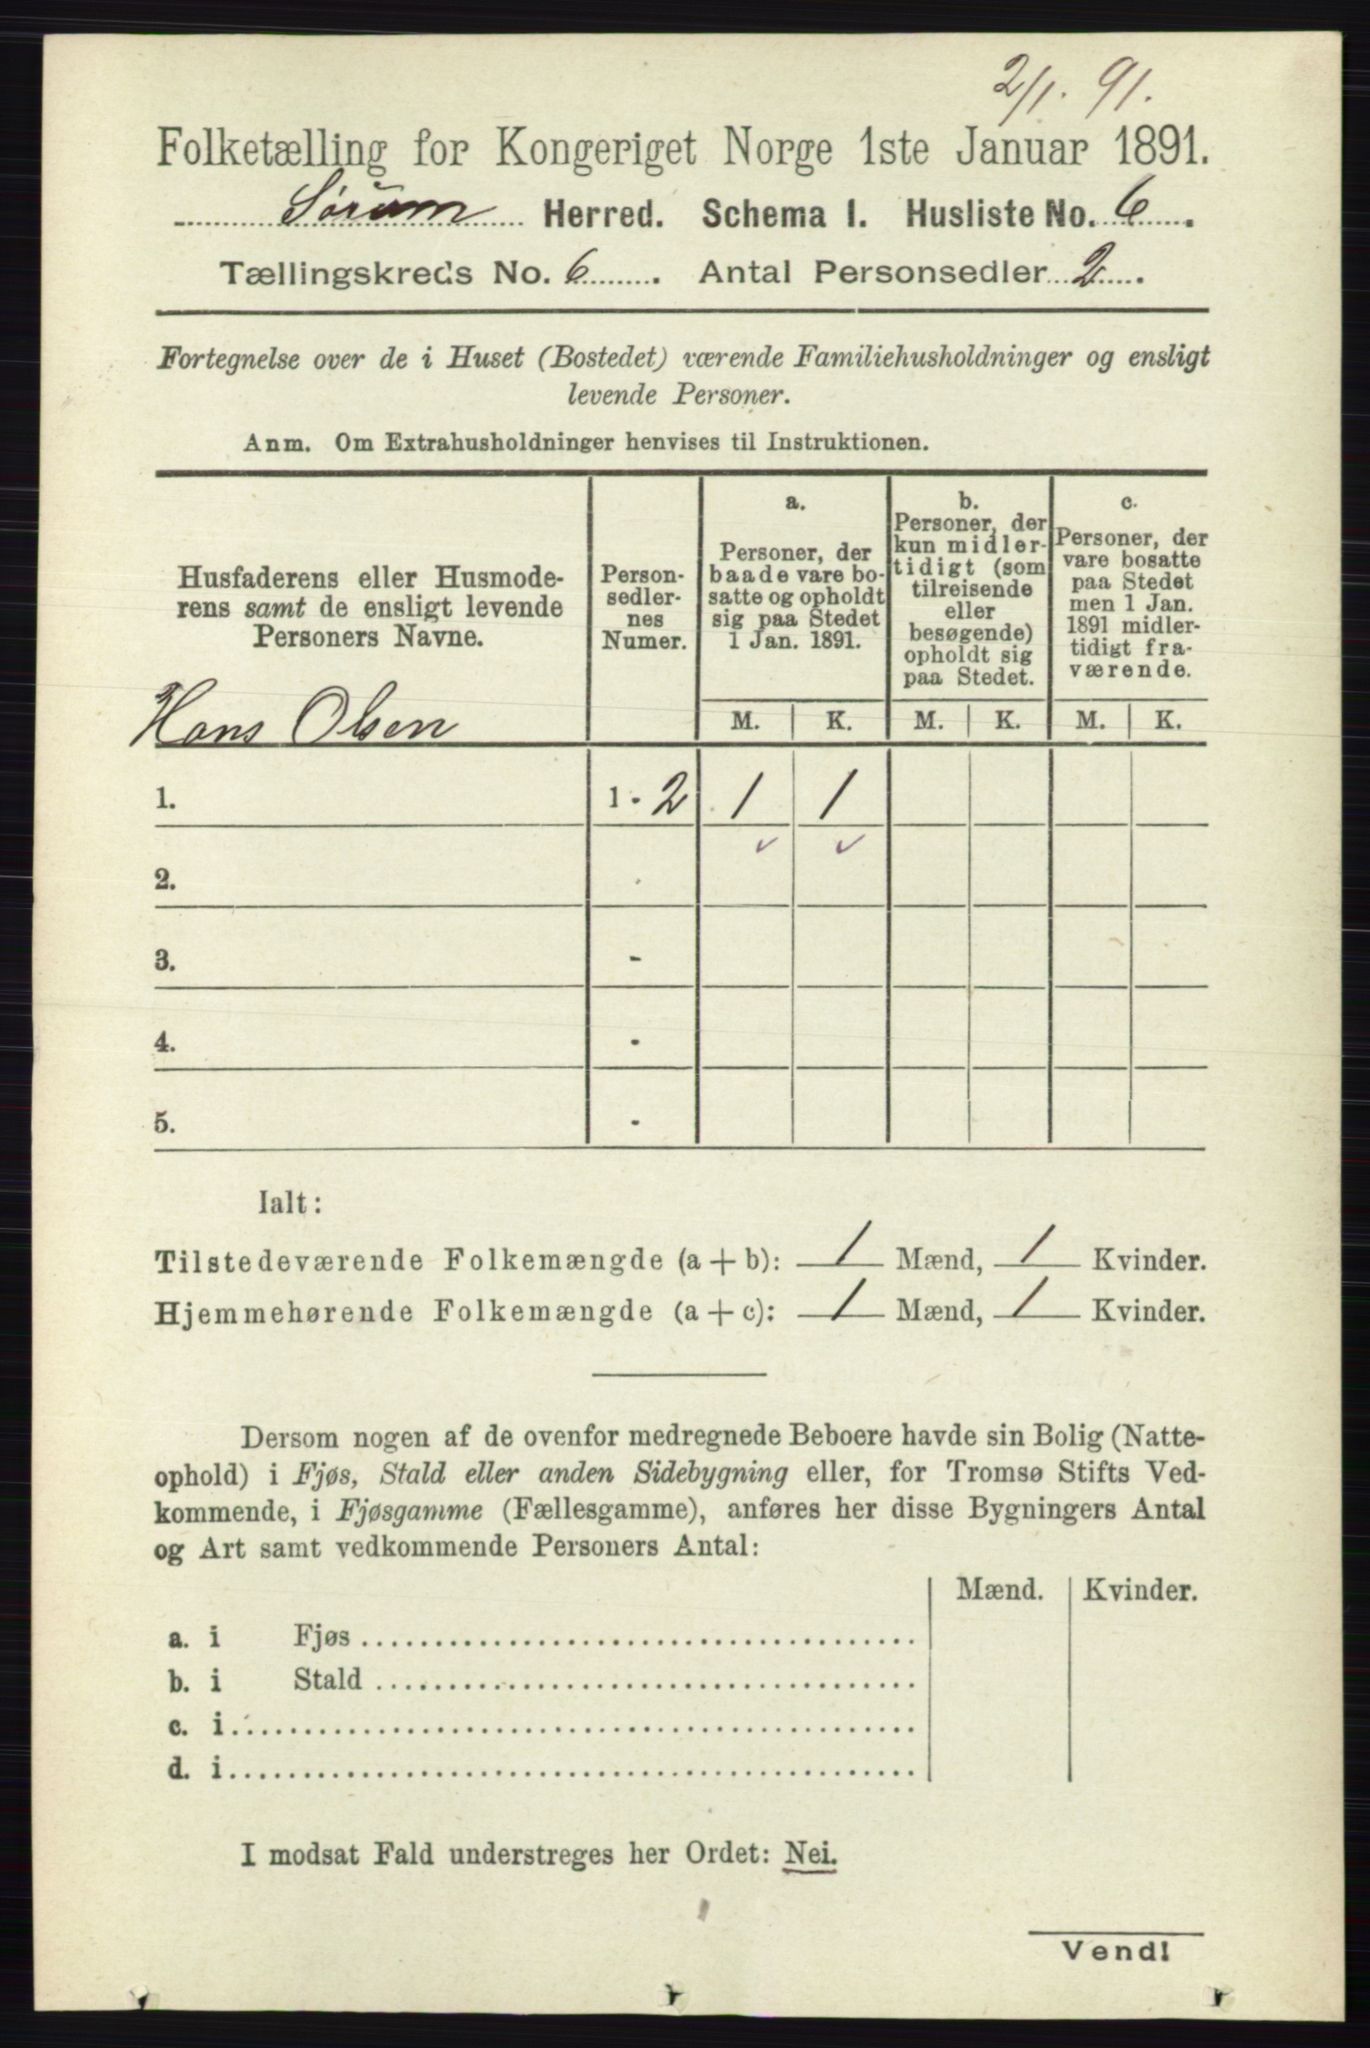 2/1. 91.
Folketælling for Kongeriget Norge 1ste Januar 1891.
Sørum Herred. Schema I. Husliste No. 6.
Tællingskreds No. 6. Antal Personsedler 2.
Fortegnelse over de i Huset (Bostedet) værende Familiehusholdninger og ensligt
levende Personer.
Anm. Om Extrahusholdninger henvises til Instruktionen.
Husfaderens eller Husmode-
rens samt de ensligt levende
Personers Navne.
Person-
sedler-
nes
Numer.
a.
Personer, der
baade vare bo-
satte og opholdt
sig paa Stedet
1 Jan. 1891.
b.
Personer, der
kun midler-
tidigt (som
tilreisende
eller
besøgende)
opholdt sig
paa Stedet.
c.
Personer, der
vare bosatte
paa Stedet
men 1 Jan.
1891 midler-
tidigt fra-
værende.
M. K. M. K. M. K.
Hans Olsen
1. 1 - 2 1 1
✓ ✓
2. -
3. -
4. -
5. -
Ialt:
Tilstedeværende Folkemængde (a + b): 1 Mænd, 1 Kvinder.
Hjemmehørende Folkemængde (a + c): 1 Mænd, 1 Kvinder.
Dersom nogen af de ovenfor medregnede Beboere havde sin Bolig (Natte-
ophold) i Fjøs, Stald eller anden Sidebygning eller, for Tromsø Stifts Ved-
kommende, i Fjøsgamme (Fællesgamme), anføres her disse Bygningers Antal
og Art samt vedkommende Personers Antal:
Mænd. Kvinder.
a. i Fjøs
b. i Stald
c. i
d. i
I modsat Fald understreges her Ordet: Nei.
Vend!